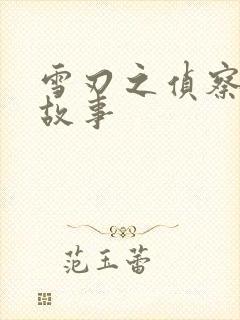 雪刃之侦察
故事
范玉蕾